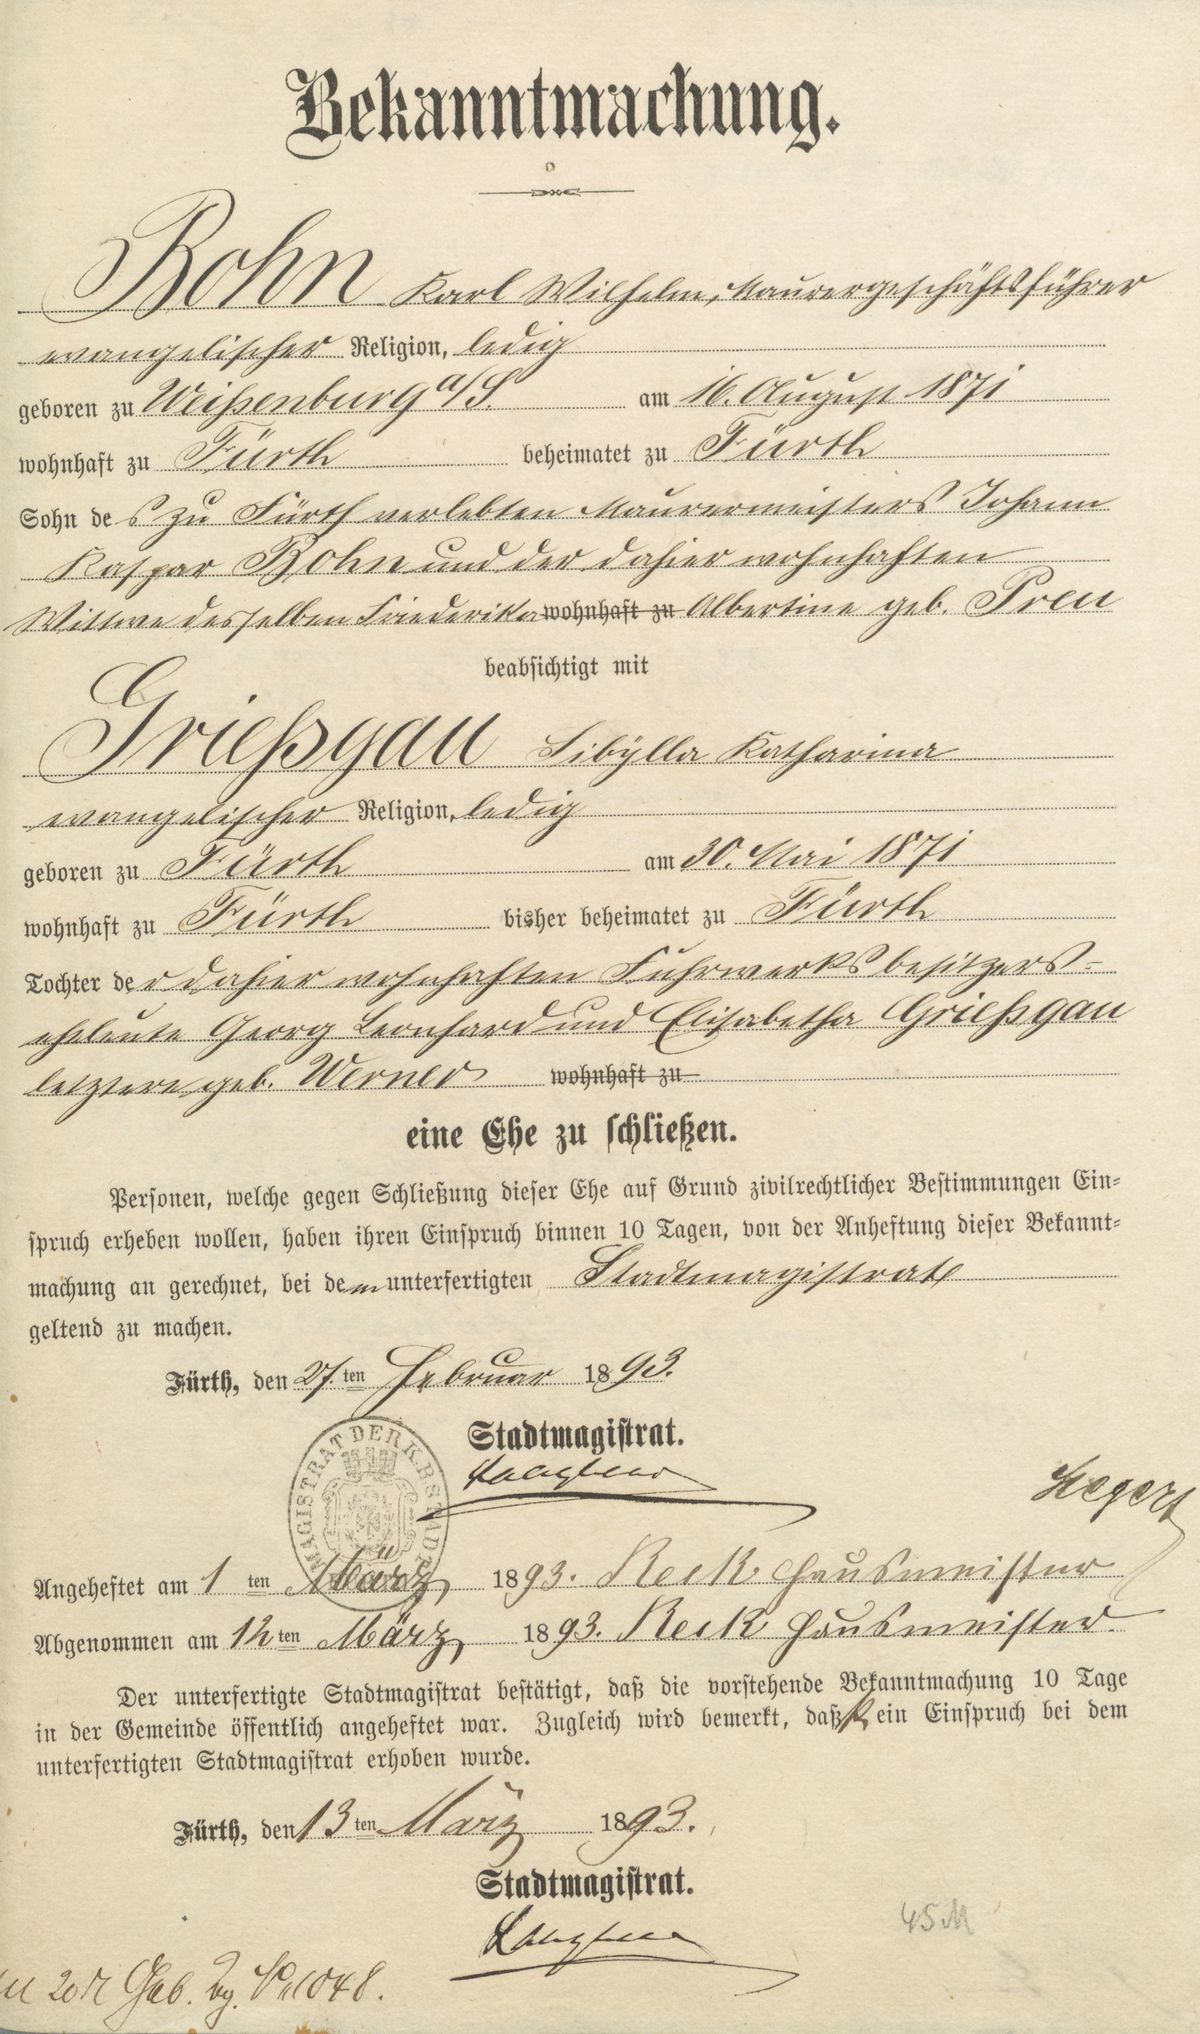 Bekanntmachung.
Rohn Karl Wilhelm, Maurergeschäftsführer
evangelischer Religion, ledig
geboren zu Weißenburg a/S. am 16. August 1871
wohnhaft zu Fürth beheimatet zu Fürth
Sohn des zu Fürth verlebten Maurermeisters Johann
Kaspar Rohn und der dahier wohnhaften
Wittwe desselben Friederika wohnhaft zu Albertine geb. Preu
beabsichtigt mit
Grießgau Sibÿlla Katharina
evangelischer Religion, ledig
geboren zu Fürth am 30. Mai 1871
wohnhaft zu Fürth bisher beheimatet zu Fürth
Tochter der dahier wohnhaften Fuhrwerksbesitzers-
eheleute Georg Leonhard und Elisabetha Grießgau
letztere geb. Werner wohnhaft zu
eine Ehe zu schließen.
Personen, welche gegen Schließung dieser Ehe auf Grund zivilrechtlicher Bestimmungen Ein-
spruch erheben wollen, haben ihren Einspruch binnen 10 Tagen, von der Anheftung dieser Bekannt-
machung an gerechnet, bei dem unterfertigten Stadtmagistrat
geltend zu machen.
Fürth, den 27. ten Februar 1893.
Stadtmagistrat.
MAGISTRAT DER K. B. STADT
Hegert
Angeheftet am 1 ten März 1893. Reck Hausmeister
Abgenommen am 12 ten März 1893. Reck Hausmeister.
Der unterfertigte Stadtmagistrat bestätigt, daß die vorstehende Bekanntmachung 10 Tage
in der Gemeinde öffentlich angeheftet war. Zugleich wird bemerkt, daß kein Einspruch bei dem
unterfertigten Stadtmagistrat erhoben wurde.
Fürth, den 13 ten März 1893.
Stadtmagistrat.
45 M
Geb. 1048.